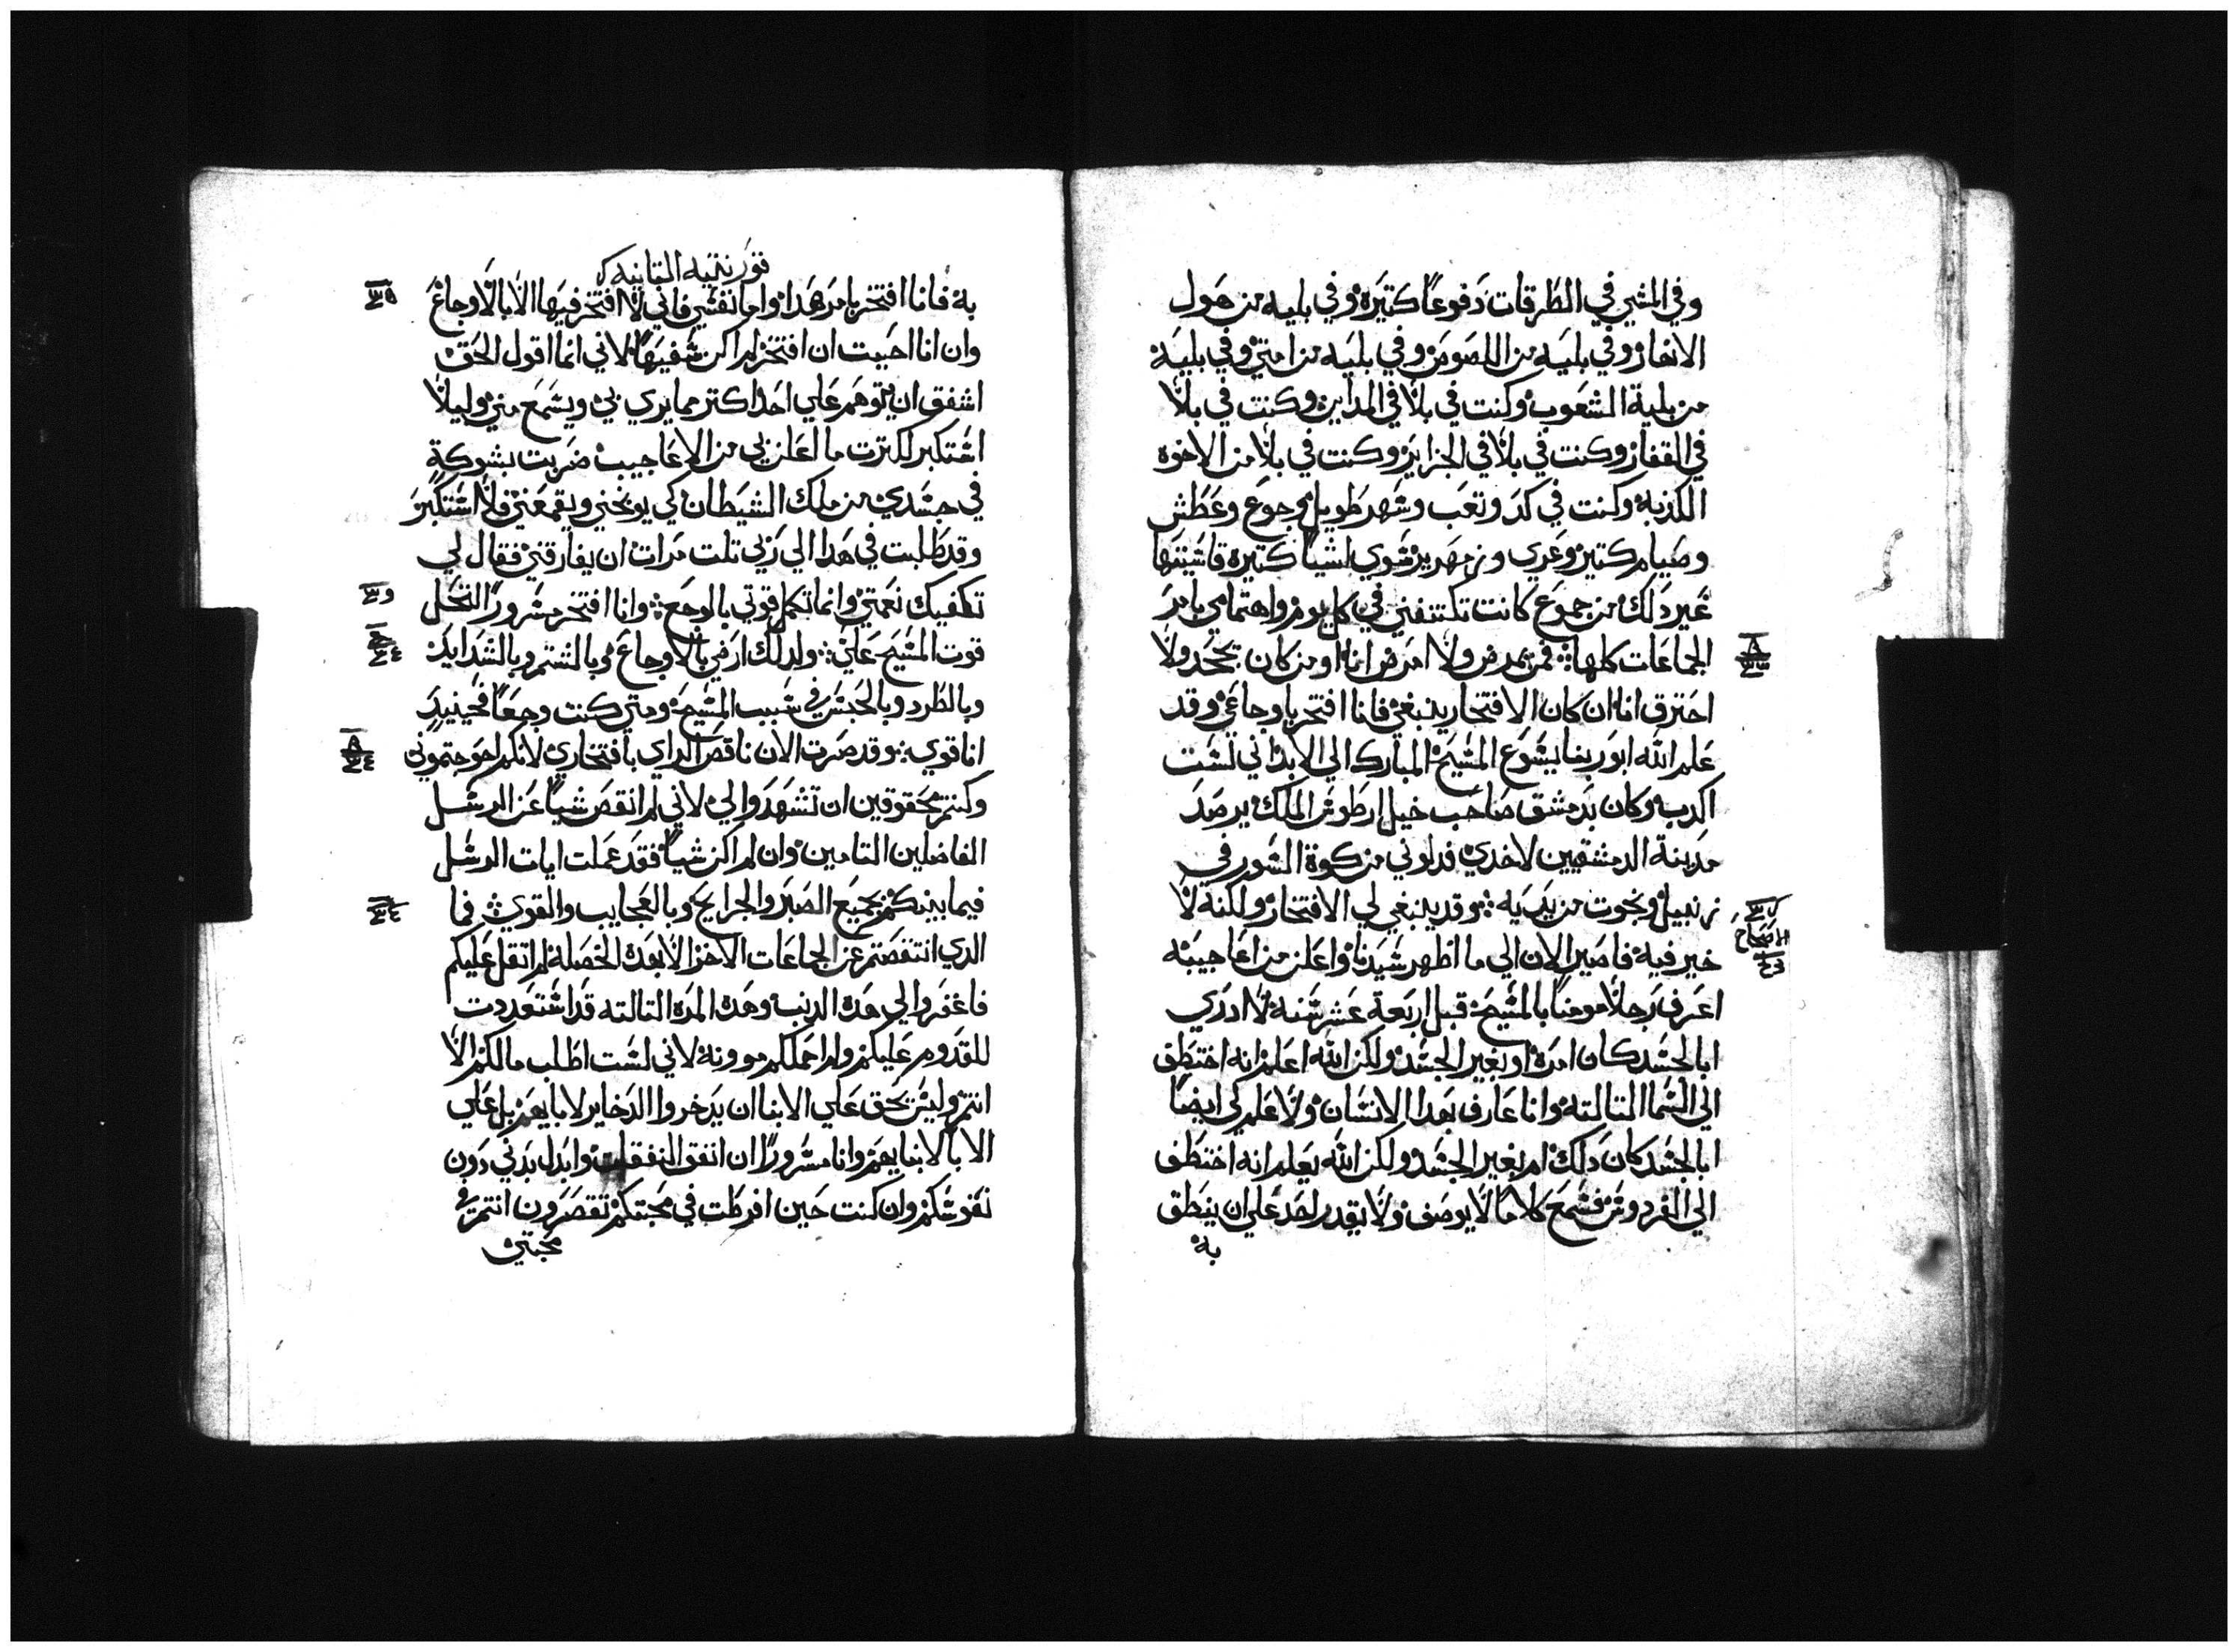 وفي المشي في الطرقات دفوعًا كتيره وفي بليه من هول
الانهار وفي بليه من اللصوص وفي بليه من امتي وفي بليه
من بلية الشعوب وكنت في بلا في المداين وكنت في بلا
في القفار وكنت في بلا في الجزاير وكنت في بلا من الاخوه
الكذبه وكنت في كد وتعب وسهر طويل وجوع وعطش
وصيام كتير وعري وزمهرير سوي اشيا كتيره قاسيتها
غير دلك من جموع كانت تكتنفني في كل يوم واهتمامي بامر
الجماعات كلها فمن يمرض ولا امرض انا او من كان يجحد ولا
احترق انا ان كان الافتخار ينبغي فانا افتخر باوجاعي وقد
علم الله ابو ربنا يسوع المسيح المبارك الي الابد اني لست
اكدب وكان بدمشق صاحب خيل ارطوس الملك يرصد
مدينة الدمشقيين لاخدي فدلوني من كوة السور في
زنبيل ونجوت من يديه وقد ينبغي لي الافتخار ولكنه لا
الاصحاح
خير فيه فاصير الان الي ما اظهر سيدنا واعلن من اعاجيبه
اعرف رجلا مومنًا بالمسيح قبل اربعة عشر سنه لا ادري
ابالجسد كان امره او بغير الجسد ولكن الله اعلم انه اختطف
الي السما التالته وانا عارف بهدا الانسان ولا علم لي ايضًا
ابالجسد كان دلك ام بغير الجسد ولكن الله يعلم انه اختطف
الي الفردوس فسمع كلامًا لا يوصف ولا يقدر احد علي ان ينطق
به
قورنتيه التانيه
به فانا افتخر بامر هدا واما نفسي فاني لا افتخر فيها الا بالاوجاع
وان انا احببت ان افتخر لم اكن سفيهًا لاني انما اقول الحق
اشفق ان يتوهم علي احد اكتر مما يري بي ويسمع مني وليلا
استكبر لكترت ما اعلن لي من الاعاجيب ضربت بشوكة
في جسدي من ملك الشيطان كي يوبخني ويقمعني فلا استكبر
وقد طلبت في هدا الي ربي تلت مرات ان يفارقني فقال لي
تكفيك نعمتي وانما تكمل قوتي بالوجع وانا افتخر مسرورًا لتحل
قوت المسيح علي ولدلك ارضي بالاوجاع وبالشتم وبالشدايد
وبالطرد وبالحبس في سبب المسيح ومتي كنت وجعًا فحينيد
انا قوي وقد صرت الان ناقص الراي بافتخاري لانكم احوجتموني
وكنتم محقوقين ان تشهدوا لي لاني لم انقص شيًا عن الرسل
الفاضلين التامين وان لم اكن شيًا فقد عملت ايات الرسل
فيما بينكم بجميع الصبر والجرايح وبالعجايب والقوي فما
الدي انتقصتم عن الجماعات الاخر الا بهده الخصله لم اتقل عليكم
فاغفروا لي هده الدنب وهده المره التالته قد استعددت
للقدوم عليكم ولم احملكم موونه لاني لست اطلب مالكم الا
انتم وليس يحق علي الابنا ان يدخروا الدخاير لابايهم بل علي
الابا لابنايهم وانا مسرورًا ان انفق النفقات وابدل بدني دون
نفوسكم وان كنت حين افرطت في محبتكم تقصرون انتم في
محبتي